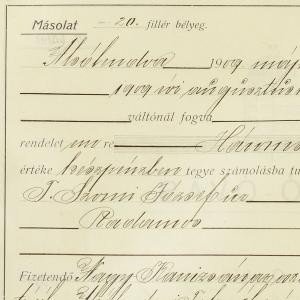 Másolat 20. fillér bélyeg.
Alsólendva 1909 máj
1909 évi augusztus
váltónál fogva
rendelet re Három
értéke készpénzben tegye számolásba
T. József úr
Radamos
Fizetendő Nagy Kanizsán